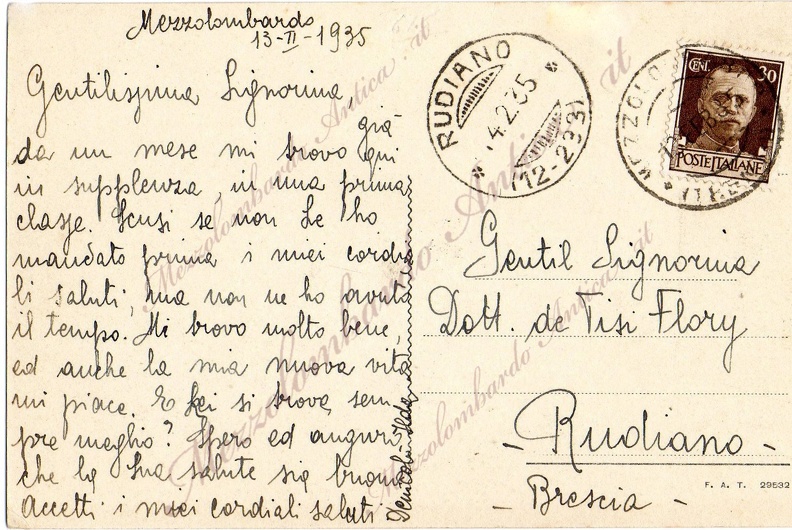 Mezzolombardo
13-II-1935
Gentilissima Signorina,
già
da un mese mi trovo qui
in supplenza, in una prima
classe. Scusi se non Le ho
mandato prima i miei cordia
li saluti, ma non ne ho avuto
il tempo. Mi trovo molto bene,
ed anche la mia nuova vita
mi piace. E Lei si trova sem-
pre meglio? Spero ed auguro
che la Sua salute sia buona
Accetti i miei cordiali saluti
Ilda
RUDIANO
14.2.35
(12-2931)
MEZZOLO
CENT. 30
POSTE ITALIANE
Gentil Signorina
Dott. de Tisi Flory
- Rudiano -
- Brescia -
F. A. T. 29532
Mezzolombardo Antica.it
Mezzolombardo Antica.it
Mezzolombardo Antica.it